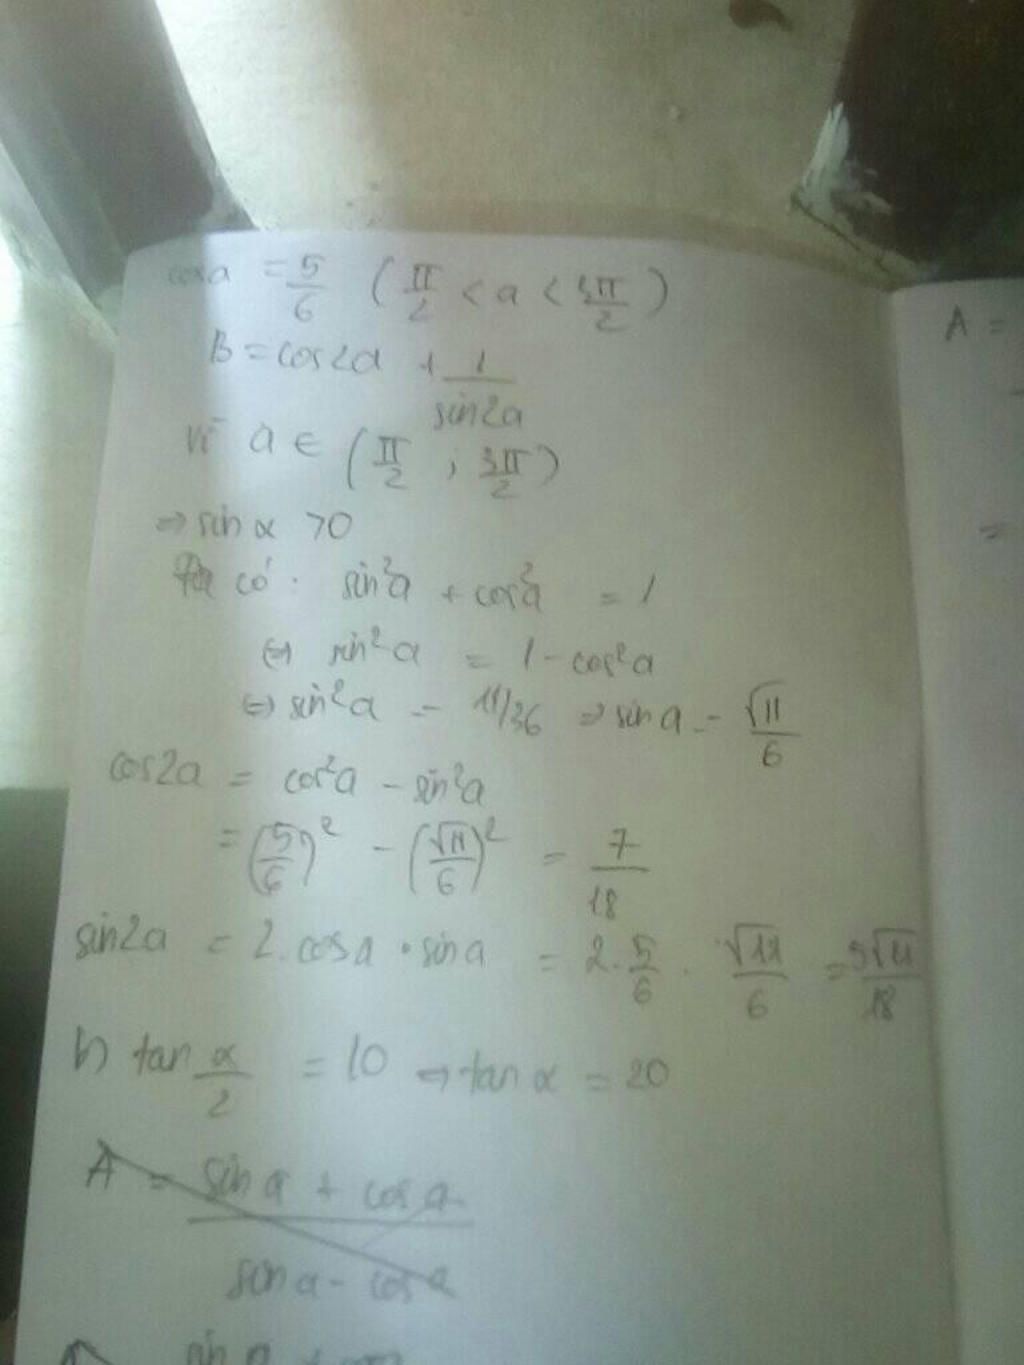 cosa = 5/6 (π/2 < a < 3π/2)
B = cos2a + 1/sin2a
Vì a ∈ (π/2 ; 3π/2)
⇒ sin α > 0
Ta có : sin²a + cos²a = 1
⇔ sin²a = 1 - cos²a
⇔ sin²a = 11/36 ⇒ sin a = √11/6
cos2a = cos²a - sin²a
= (5/6)² - (√11/6)² = 7/18
sin2a = 2.cosa . sin a = 2. 5/6 . √11/6 = 5√11/18
b) tan α/2 = 10 ⇒ tan α = 20
A = sin a + cos a / sin a - cos a
sin a +
A =
=